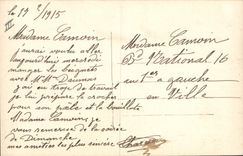 le 13 1915
Madame Camoin
j'aurai voulu aller
aujourd'hui mercredi
manger les beignets
avec Mme Daumas
j'ai eu trop de travail
je lui prépare le crochet
pour son poële et la bouillote
Madame Camoin, je
vous remercie de la soirée
de Dimanche
mes amitiés les plus sincère
Madame Camoin
Bd National 16
au 1er gauche
en Ville